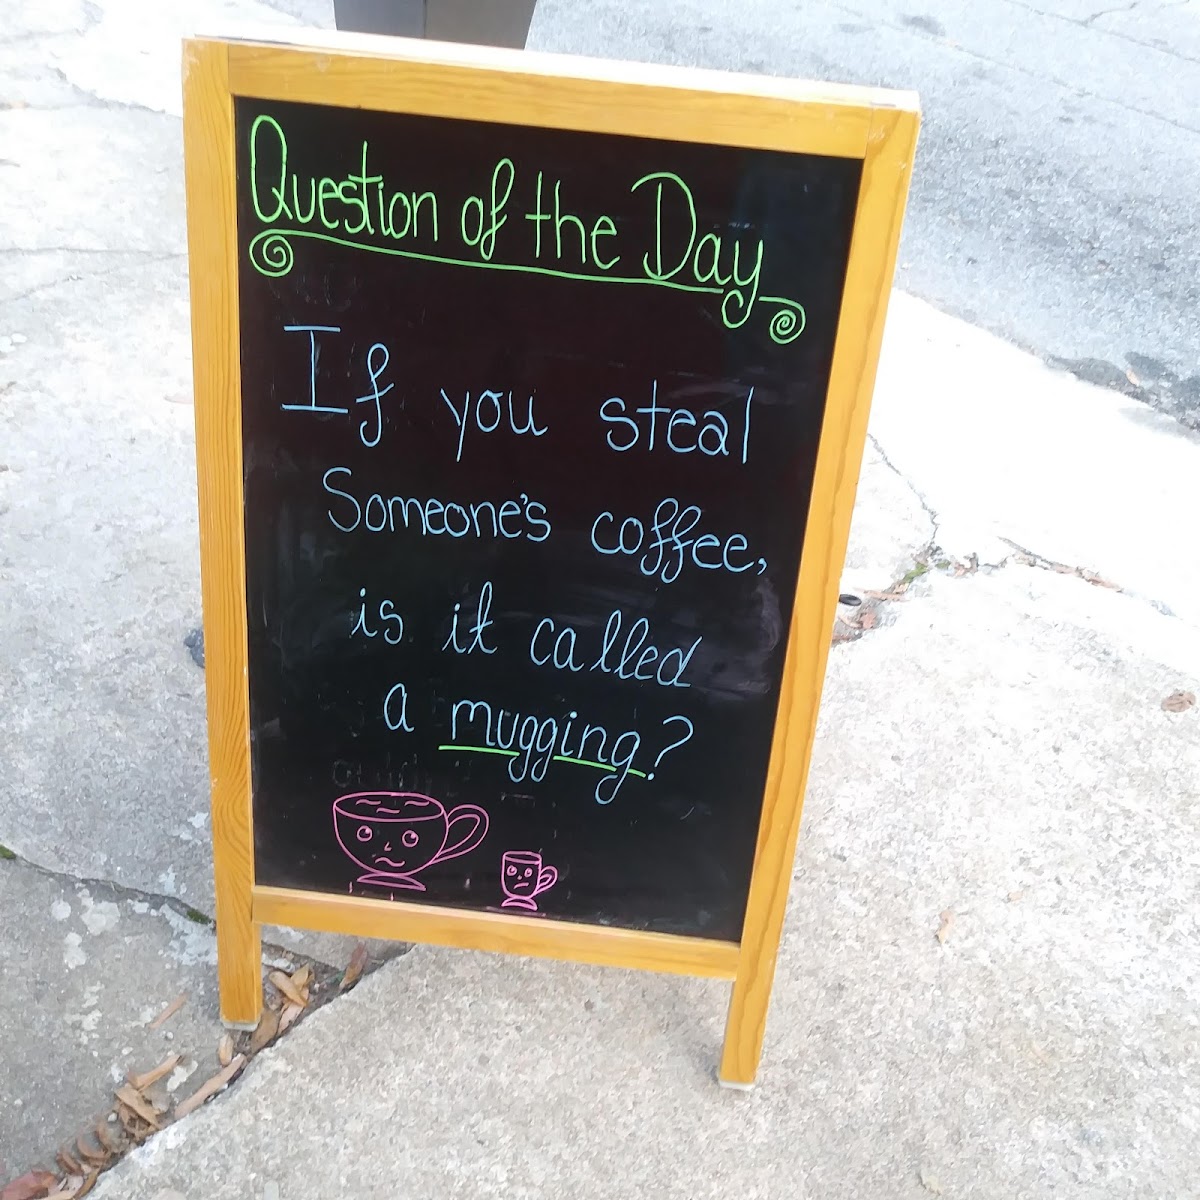 Question of the Day
If you steal
Someone's coffee,
is it called
a mugging?